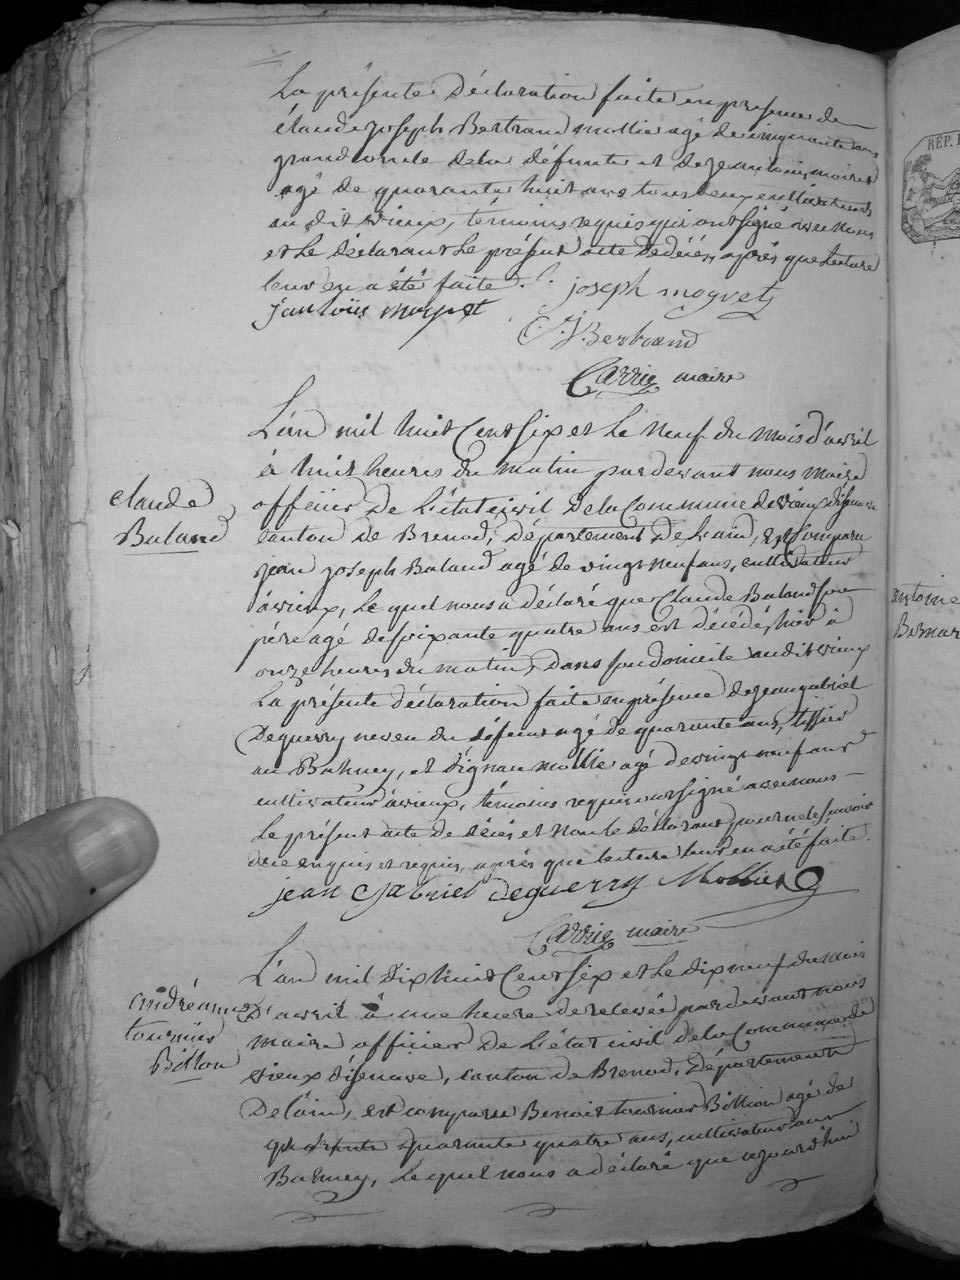 La présente déclaration faite en presence de
Claude Joseph Bertrand mollie agé de cinquante ans
grand oncle de la défunte et de jean louis moiret
agé de quarante huit ans tous deux cultivateurs
au dit vieux, témoins requis qui ont signé avec nous
et le déclarant le présent acte de décès, après que lecture
leur en a été faite.
joseph moyret
jan louis moyret
C. J. Bertrand
Carrie maire
L'an mil huit Cent six et le neuf du mois d'avril
à huit heures du matin pardevant nous maire
officier de L'état civil de la Commune de vieux
claude
Baland
Canton de Brenod, département de L'ain, est Comparu
jean joseph Baland agé de vingt neuf ans, cultivateur
à vieux, le quel nous a déclaré que Claude Baland son
père agé de soixante quatre ans est décédé, hier à
onze heures du matin, dans son domicile audit vieux
La présente déclaration faite en présence de jean gabriel
Deguerry neveu du défunt agé de quarante ans, tissier
au Balmey, et mollie agé de vingt neuf ans
cultivateur à vieux, témoins requis ont signé avec nous
le présent acte de décès et non le déclarant pour ne le savoir
de ce enquis et requis, après que lecture leur en a été faite.
jean Gabriel deguerry Mollie
Carrie maire
L'an mil dix huit Cent six et le dix neuf du mois
D'avril à une heure de relevée pardevant nous
maire officier de L'état civil de la Commune de
vieux d'isenave, canton de Brenod, Département
De l'ain, est comparu Benoit tournier Billion agé de
quarante quatre ans, cultivateur au
Balmey, le quel nous a déclaré que cejourd'hui
tournier
Billon
RÉP.
antoine
Bernar